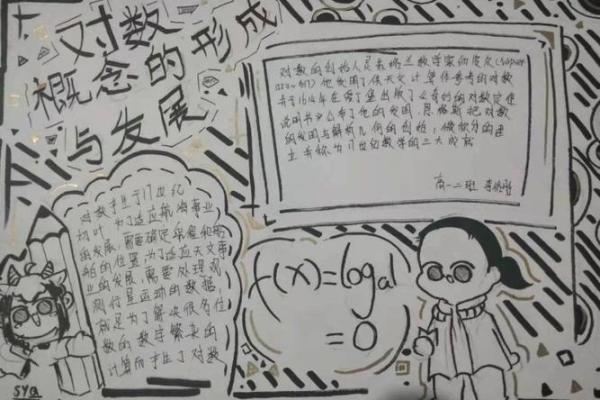 对数
概念的形成
与发展
对数的创始人是苏格兰数学家纳皮尔(Napier
1550-1617)他发明了供天文计算作参考的对数
并于1614年在爱丁堡出版了《奇妙的对数定律
说明书》公布了他的发明。恩格斯把对数
的发明与解析几何的创始,微积分的建
立并称为17世纪数学的三大成就
高一二班
对数产生于17世纪
初叶,为了适应航海事业
的发展,需要确定航程和船
舶的位置,为了适应天文事
业的发展,需要处理观
测行星运动的数据
就是为了解决很多位
数的数字繁杂的
计算而产生了对数
f(x)=logₐ1
=0
sya